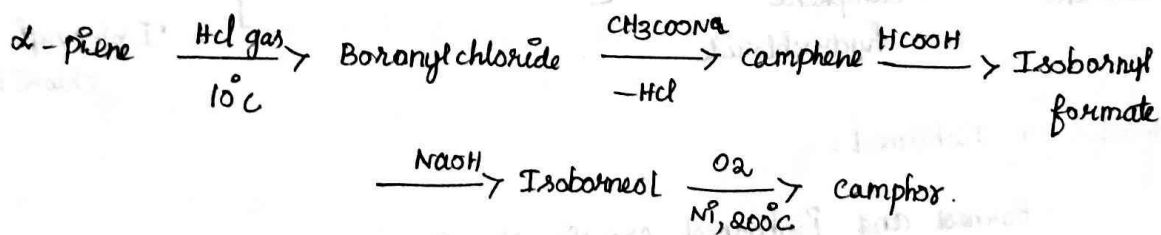 α-piene HCl gas 10°C Boronylchloride CH3COONa -HCl camphene HCOOH Isobornyl
formate
NaOH Isoborneol O2 Ni, 200°C camphor.